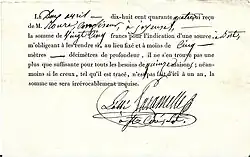 Le Cinq avril dix-huit cent quarante quatre reçu
de M.
la somme de Vingt-Cinq francs pour l'indication d'une source
m'obligeant à les rendre si, au lieu fixé et à moins de Cinq
mètres décimètres de profondeur, il ne s'en trouve pas une
plus que suffisante pour tous les besoins de quinze maisons; néan-
moins si le creux, tel qu'il est tracé, n'est pas fait d'ici à un an, la
somme me sera irrévocablement acquise.